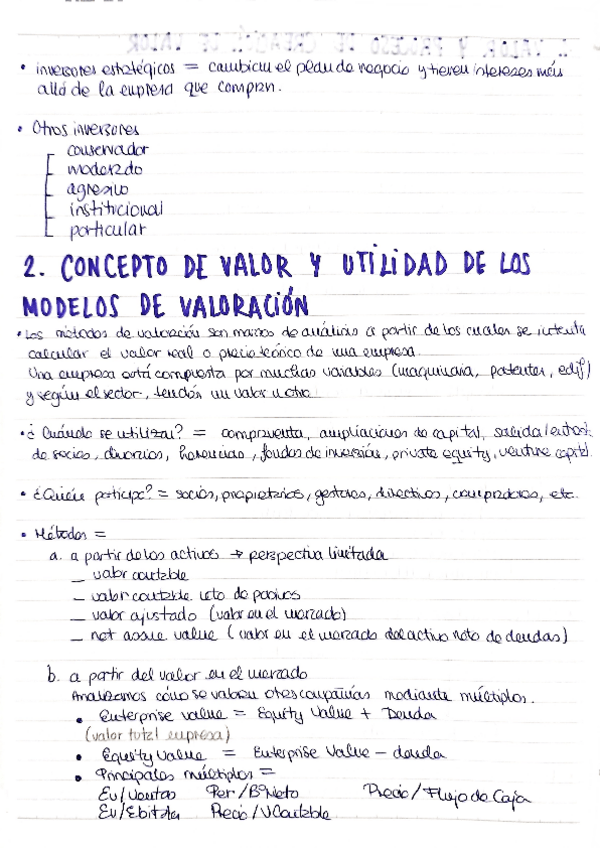 • inversores estratégicos = cambian el plan de negocio y tienen intereses más
allá de la empresa que compran.
• Otros inversores
conservador
moderado
agresivo
institucional
particular
2. CONCEPTO DE VALOR Y UTILIDAD DE LOS
MODELOS DE VALORACIÓN
• Los métodos de valoración son marcos de análisis a partir de los cuales se intenta
calcular el valor real o precio teórico de una empresa.
Una empresa está compuesta por muchas variables (maquinaria, patentes, edif)
y según el sector, tendrán un valor u otro.
• ¿Cuándo se utilizan? = compraventa, ampliaciones de capital, salida/entrada
de socios, divorcios, herencias, fondos de inversión, private equity, venture capital.
• ¿Quién participa? = socios, propietarios, gestores, directivos, compradores, etc.
• Métodos =
a. a partir de los activos → perspectiva limitada
— valor contable
— valor contable neto de pasivos
— valor ajustado (valor en el mercado)
— net asset value (valor en el mercado del activo neto de deudas)
b. a partir del valor en el mercado
Analizamos cómo se valoran otras compañías mediante múltiplos.
• Enterprise value = Equity Value + Deuda
(valor total empresa)
• Equity Value = Enterprise Value – deuda
• Principales múltiplos =
Ev/Ventas Per/BºNeto Precio/Flujo de Caja
Ev/Ebitda Precio/VContable